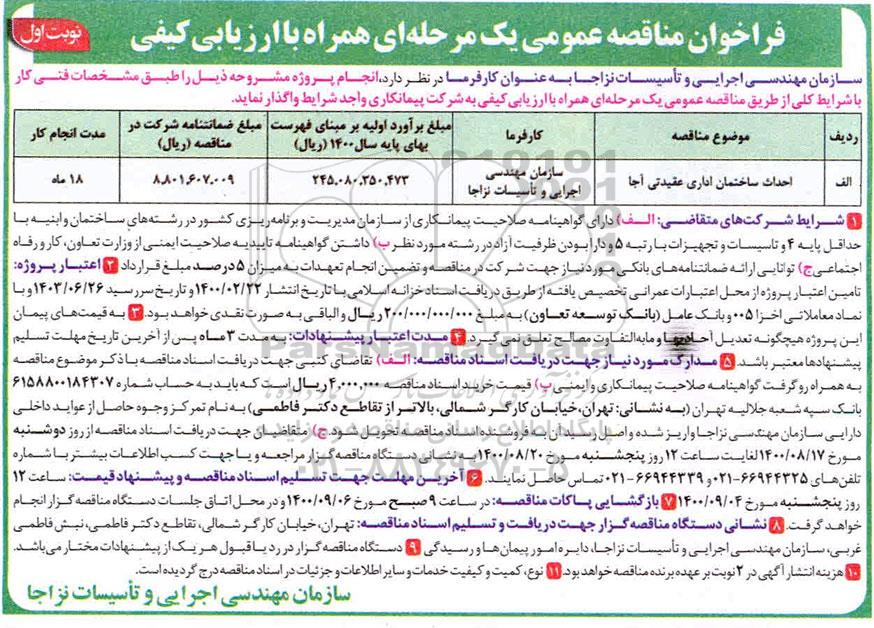 فراخوان مناقصه عمومی یک مرحله‌ای همراه با ارزیابی کیفی
نوبت اول
سازمان مهندسی اجرایی و تأسیسات نزاجا به عنوان کارفرما در نظر دارد، انجام پروژه مشروحه ذیل را طبق مشخصات فنی کار
با شرایط کلی از طریق مناقصه عمومی یک مرحله‌ای همراه با ارزیابی کیفی به شرکت پیمانکاری واجد شرایط واگذار نماید.
ردیف
موضوع مناقصه
کارفرما
مبلغ برآورد اولیه بر مبنای فهرست بهای پایه سال ۱۴۰۰ (ریال)
مبلغ ضمانتنامه شرکت در مناقصه (ریال)
مدت انجام کار
الف
احداث ساختمان اداری عقیدتی آجا
سازمان مهندسی اجرایی و تأسیسات نزاجا
۲۴۵،۰۸۰،۳۵۰،۴۷۳
۸،۸۰۱،۶۰۷،۰۰۹
۱۸ ماه
۱ شرایط شرکت‌های متقاضی: الف) دارای گواهینامه صلاحیت پیمانکاری از سازمان مدیریت و برنامه‌ریزی کشور در رشته‌های ساختمان و ابنیه با
حداقل پایه ۴ و تاسیسات و تجهیزات با رتبه ۵ و دارا بودن ظرفیت آزاد در رشته مورد نظر ب) داشتن گواهینامه تاییدیه صلاحیت ایمنی از وزارت تعاون، کار و رفاه
اجتماعی ج) توانایی ارائه ضمانتنامه‌های بانکی مورد نیاز جهت شرکت در مناقصه و تضمین انجام تعهدات به میزان ۵ درصد مبلغ قرارداد ۲ اعتبار پروژه:
تامین اعتبار پروژه از محل اعتبارات عمرانی تخصیص یافته از طریق دریافت اسناد خزانه اسلامی با تاریخ انتشار ۱۴۰۰/۰۲/۲۲ و تاریخ سررسید ۱۴۰۳/۰۶/۲۶ و با
نماد معاملاتی اخزا ۰۰۵ و بانک عامل (بانک توسعه تعاون) به مبلغ ۲۰۰/۰۰۰/۰۰۰/۰۰۰ ریال و الباقی به صورت نقدی خواهد بود. ۳ به قیمت‌های پیمان
این پروژه هیچگونه تعدیل آحادبها و مابه‌التفاوت مصالح تعلق نمی‌گیرد. ۴ مدت اعتبار پیشنهادات: به مدت ۳ ماه پس از آخرین تاریخ مهلت تسلیم
پیشنهادها معتبر باشد. ۵ مدارک مورد نیاز جهت دریافت اسناد مناقصه: الف) تقاضای کتبی جهت دریافت اسناد مناقصه با ذکر موضوع مناقصه
به همراه رو گرفت گواهینامه صلاحیت پیمانکاری و ایمنی ب) قیمت خرید اسناد مناقصه ۴،۰۰۰،۰۰۰ ریال است که باید به حساب شماره ۶۱۵۸۸۰۰۱۸۴۳۰۷
بانک سپه شعبه جلالیه تهران (به نشانی: تهران، خیابان کارگر شمالی، بالاتر از تقاطع دکتر فاطمی) به نام تمرکز وجوه حاصل از عواید داخلی
دارایی سازمان مهندسی نزاجا واریز شده و اصل رسید آن به فروشنده اسناد مناقصه تحویل شود. ج) متقاضیان جهت دریافت اسناد مناقصه از روز دوشنبه
مورخ ۱۴۰۰/۰۸/۱۷ لغایت ساعت ۱۲ روز پنجشنبه مورخ ۱۴۰۰/۰۸/۲۰ به نشانی دستگاه مناقصه‌گزار مراجعه و یا جهت کسب اطلاعات بیشتر با شماره
تلفن‌های ۰۲۱-۶۶۹۴۴۳۲۵ و ۰۲۱-۶۶۹۴۴۳۳۹ تماس حاصل نمایند. ۶ آخرین مهلت جهت تسلیم اسناد مناقصه و پیشنهاد قیمت: ساعت ۱۲
روز پنجشنبه مورخ ۱۴۰۰/۰۹/۰۴ ۷ بازگشایی پاکات مناقصه: در ساعت ۹ صبح مورخ ۱۴۰۰/۰۹/۰۶ و در محل اتاق جلسات دستگاه مناقصه گزار انجام
خواهد گرفت. ۸ نشانی دستگاه مناقصه گزار جهت دریافت و تسلیم اسناد مناقصه: تهران، خیابان کارگر شمالی، تقاطع دکتر فاطمی، نبش فاطمی
غربی، سازمان مهندسی اجرایی و تأسیسات نزاجا، دایره امور پیمان‌ها و رسیدگی ۹ دستگاه مناقصه گزار در رد یا قبول هر یک از پیشنهادات مختار می‌باشد.
۱۰ هزینه انتشار آگهی در ۲ نوبت بر عهده برنده مناقصه خواهد بود. ۱۱ نوع، کمیت و کیفیت خدمات و سایر اطلاعات و جزئیات در اسناد مناقصه درج گردیده است.
سازمان مهندسی اجرایی و تأسیسات نزاجا
ParsNamadData
پایگاه اطلاع رسانی مناقصه و مزایده
۰۲۱-۸۸۳۴۹۶۷۰-۵